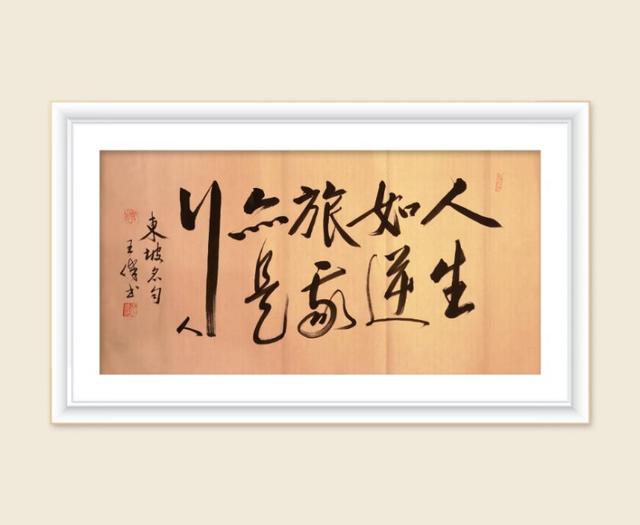 人生
如逆
旅我
亦是
行人
東坡名句
王濤书